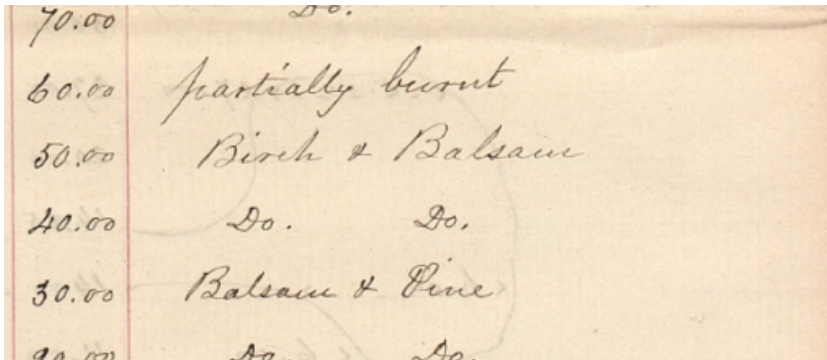 70.00 Do.
60.00 partially burnt
50.00 Birch & Balsam
40.00 Do. Do.
30.00 Balsam & Pine
20.00 Do. Do.